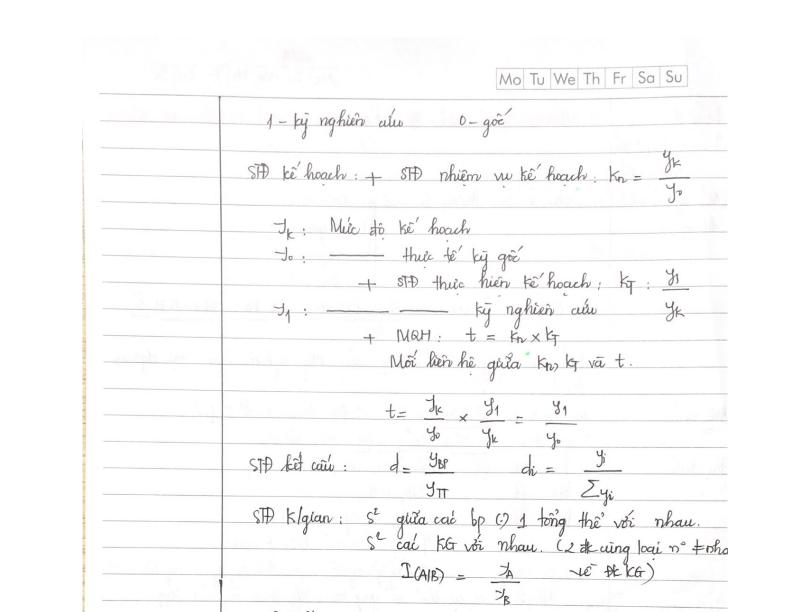 Mo Tu We Th Fr Sa Su
1 - kỳ nghiên cứu 0 - gốc
STĐ kế hoạch: + STĐ nhiệm vụ kế hoạch: Kn = yk / y0
yk: Mức độ kế hoạch
y0: ——— thực tế kỳ gốc
+ STĐ thực hiện kế hoạch: KT: y1 / yk
y1: ——— ——— kỳ nghiên cứu
+ MQH: t = Kn x KT
Mối liên hệ giữa Kn, KT và t.
t = yk / y0 x y1 / yk = y1 / y0
STĐ kết cấu: d = yBP / yTT di = yi / Σyi
STĐ K/gian: s² giữa các bp (.) 1 tổng thể với nhau.
s² các KG với nhau. (2 cùng loại n° ≠
I(A/B) = yA / yB về ĐK KG)